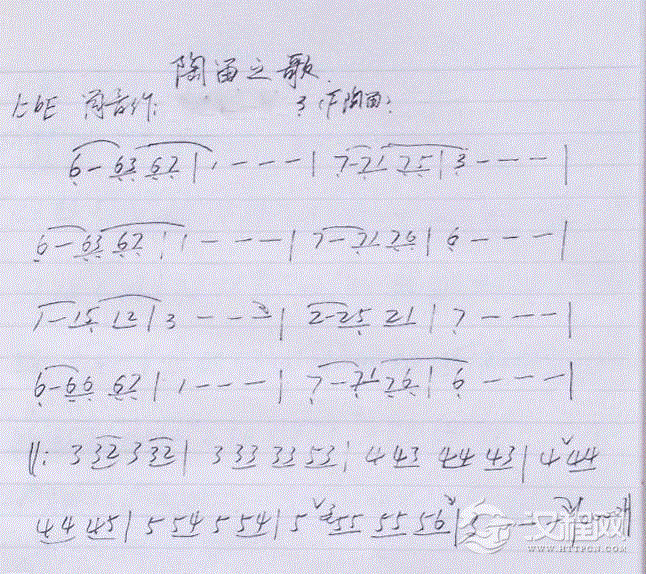 陶笛之歌
6 - 63 62 | 1 - - - | 7 - 21 25 | 3 - - - |
6 - 63 62 | 1 - - - | 7 - 21 26 | 6 - - - |
1 - 15 12 | 3 - - - | 2 - 25 21 | 7 - - - |
6 - 66 62 | 1 - - - | 7 - 21 26 | 6 - - - |
‖: 3 32 3 32 | 3 33 33 53 | 4 43 44 43 | 4 44
44 45 | 5 54 5 54 | 5 55 55 56 |
汉程网
WWW.HTTPCN.COM